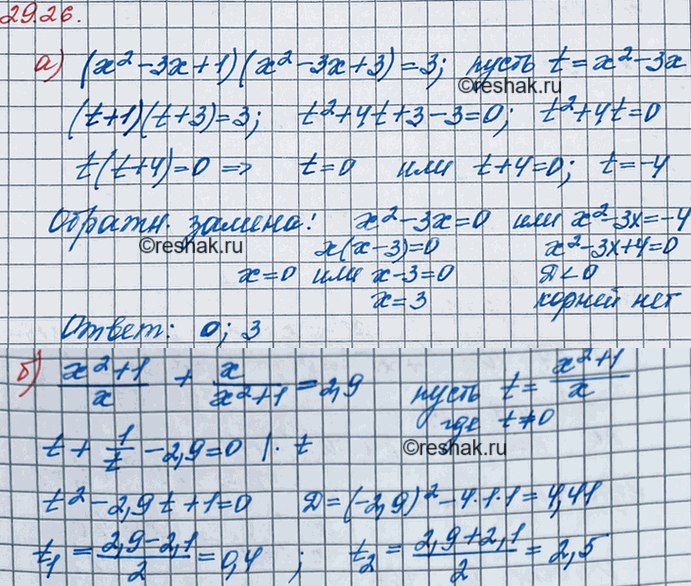 29.26.
а) (x²-3x+1)(x²-3x+3)=3; пусть t=x²-3x
©reshak.ru
(t+1)(t+3)=3; t²+4t+3-3=0; t²+4t=0
t(t+4)=0 => t=0 или t+4=0; t=-4
Обратн. замена: x²-3x=0 или x²-3x=-4
©reshak.ru
x(x-3)=0 x²-3x+4=0
x=0 или x-3=0 Д<0
x=3 корней нет
Ответ: 0; 3
б) (x²+1)/x + x/(x²+1) = 2,9 пусть t = (x²+1)/x
где t≠0
©reshak.ru
t + 1/t - 2,9=0 |· t
t²-2,9t+1=0 Д=(-2,9)²-4·1·1=4,41
t₁ = (2,9-2,1)/2 = 0,4 ; t₂ = (2,9+2,1)/2 = 2,5